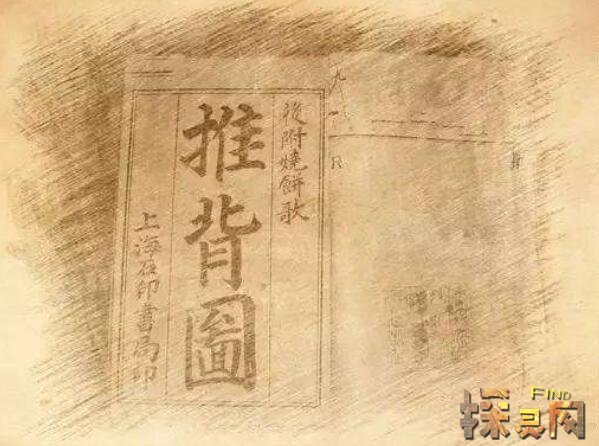 後附燒餅歌
推背圖
上海石印書局印
FIND
探灵网